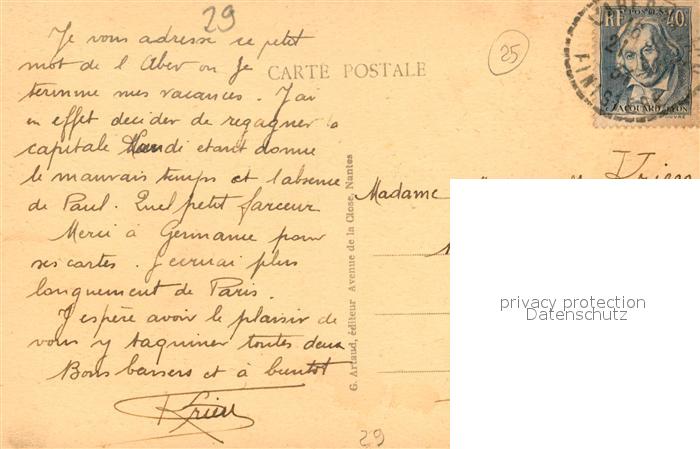 29
25
CARTE POSTALE
POSTES
RF 40c
JACQUARD LYON
FINIST
Je vous adresse ce petit
mot de l Aber ou Je
termine mes vacances. J'ai
en effet decider de regagner la
capitale Lundi etant donne
le mauvais temps et l'absence
de Paul. Quel petit farceur
Merci à Germaine pour
ses cartes. J ecrirai plus
longuement de Paris.
J espère avoir le plaisir de
vous y taquiner toutes deux
Bons baisers et à bientot
Madame
G. Artaud, éditeur Avenue de la Close, Nantes
privacy protection
Datenschutz
29